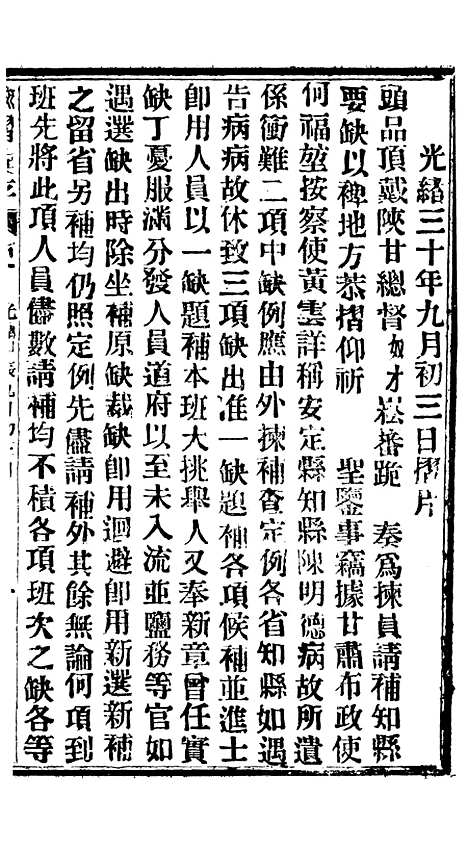 光緒三十年九月初三日摺片
頭品頂戴陝甘總督奴才崧蕃跪　奏爲揀員請補知縣
要缺以裨地方恭摺仰祈　　聖鑒事竊據甘肅布政使
何福堃按察使黃雲詳稱安定縣知縣陳明德病故所遺
係衝難二項中缺例應由外揀補查定例各省知縣如遇
告病病故休致三項缺出准一缺題補各項候補並進士
卽用人員以一缺題補本班大挑舉人又奉新章曾任實
缺丁憂服滿分發人員道府以至未入流並鹽務等官如
遇選缺出時除坐補原缺裁缺卽用迴避卽用新選新補
之留省另補均仍照定例先儘請補外其餘無論何項到
班先將此項人員儘數請補均不積各項班次之缺各等